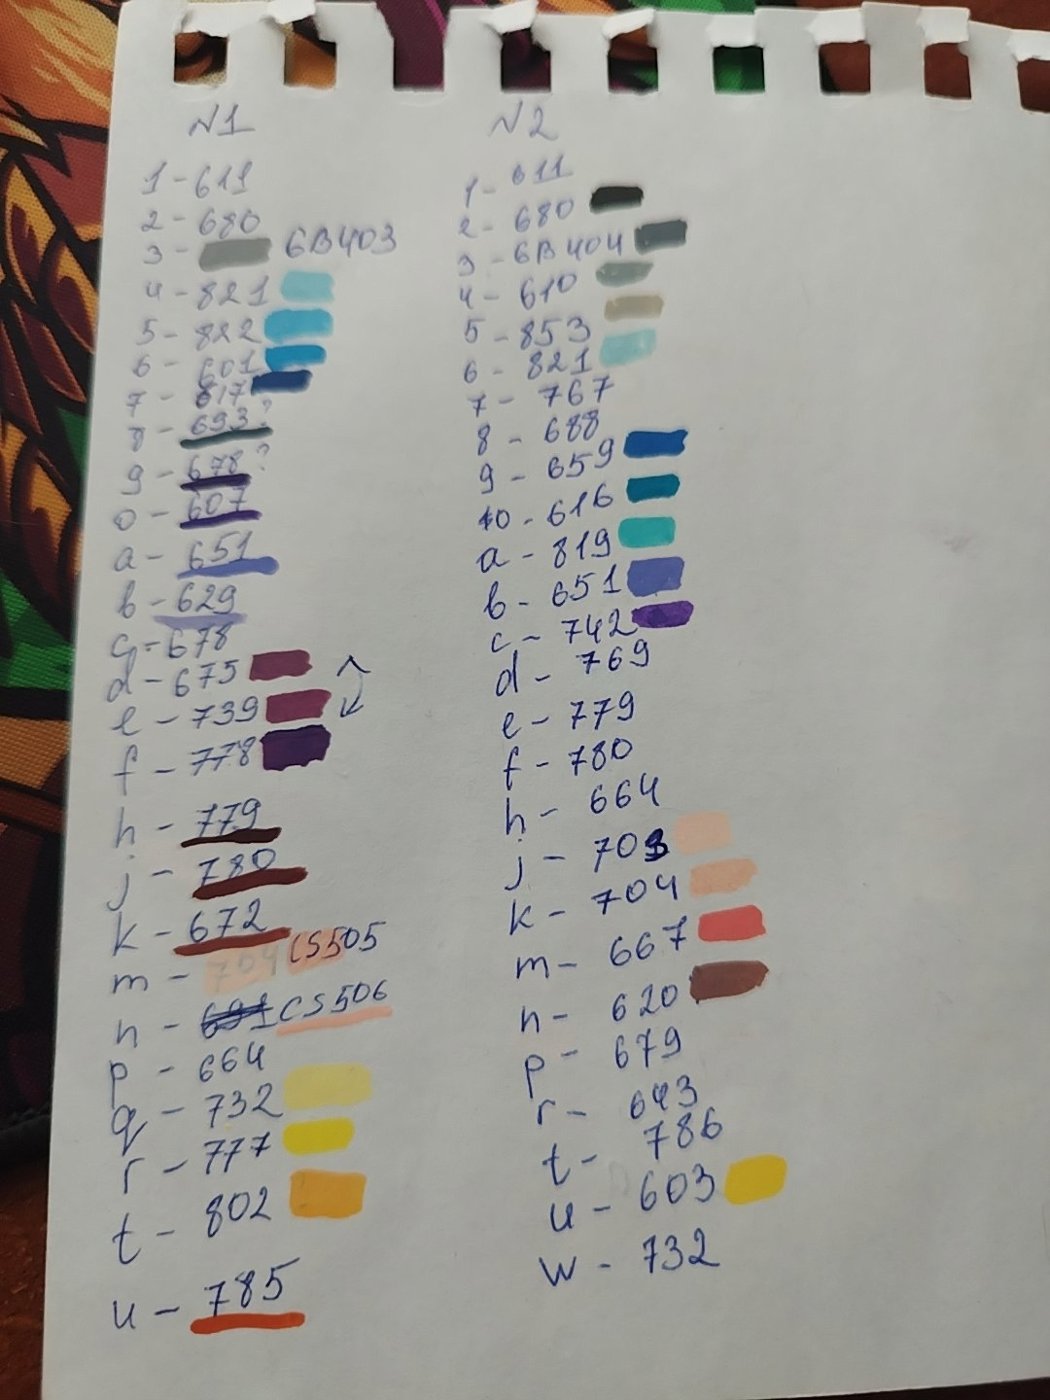 N1
1 - 611
2 - 680
3 - 6B403
4 - 821
5 - 822
6 - 601
7 - 817
8 - 693?
9 - 678?
0 - 607
a - 651
b - 629
c - 678
d - 675
e - 739
f - 778
h - 779
j - 780
k - 672
m - 704 CS505
n - 691 CS506
p - 664
q - 732
r - 777
t - 802
u - 785
N2
1 - 611
2 - 680
3 - 6B404
4 - 610
5 - 853
6 - 821
7 - 767
8 - 688
9 - 659
10 - 616
a - 819
b - 651
c - 742
d - 769
e - 779
f - 780
h - 664
j - 703
k - 704
m - 667
n - 620
p - 679
r - 643
t - 786
u - 603
w - 732